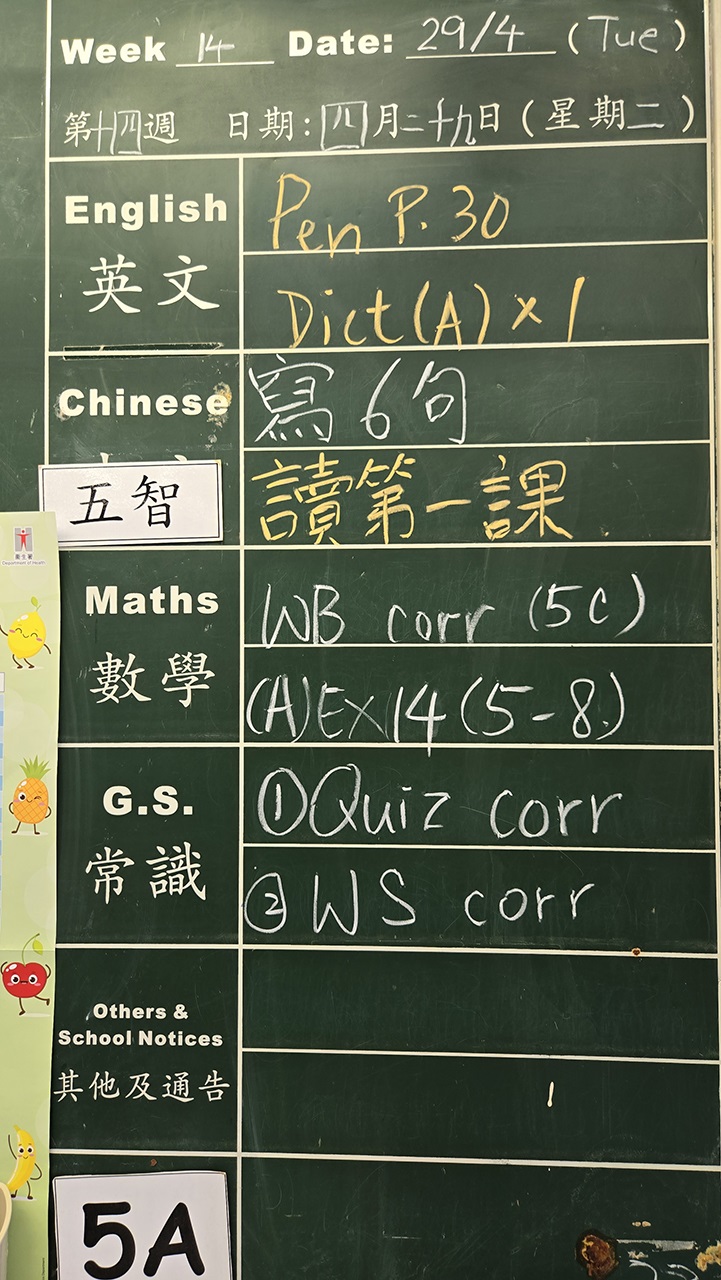 Week 14 Date: 29/4 (Tue)
第十四週 日期:四月二十九日(星期二)
English
英文
Pen P.30
Dict(A)×1
Chinese
寫6句
五智
讀第一課
衞生署
Department of Health
Maths
數學
WB corr (5C)
(A)EX14(5-8)
G.S.
常識
①Quiz corr
②WS corr
Others &
School Notices
其他及通告
5A